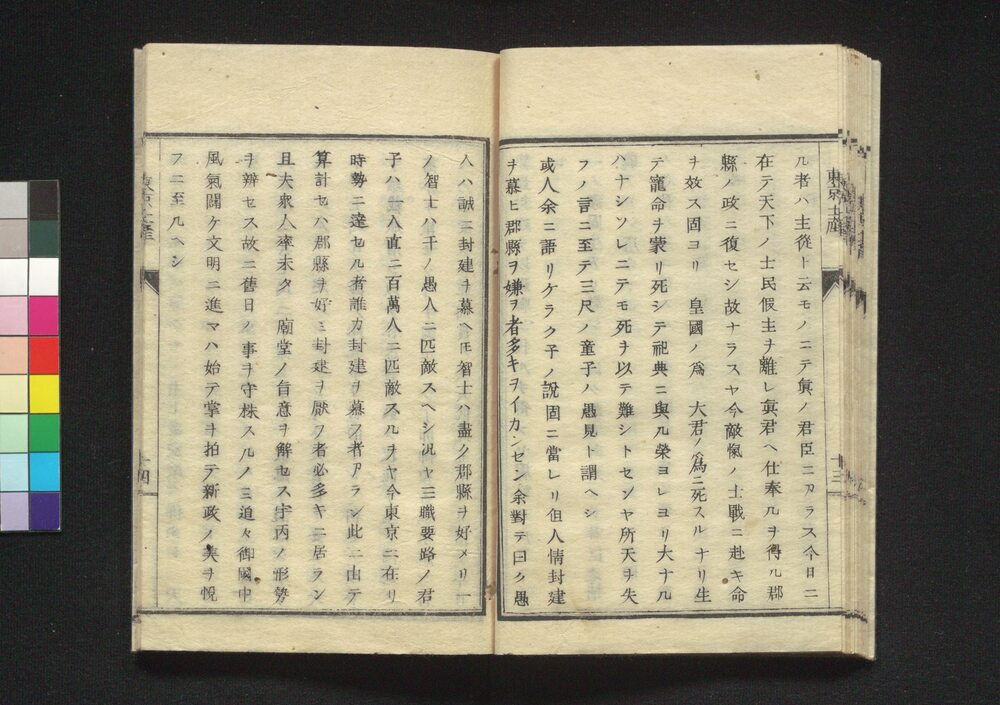 ル者ハ主從ト云モノニテ眞ノ君臣ニアラス今日ニ
在テ天下ノ士民假主ヲ離レ眞君ヘ仕奉ルヲ得ル郡
縣ノ政ニ復セシ故ナラスヤ今敵愾ノ士戰ニ赴キ命
ヲ效ス固ヨリ 皇國ノ爲 大君ノ爲ニ死スルナリ生
テ寵命ヲ蒙リ死シテ祀典ニ與ル榮ヨレヨリ大ナル
ハナシソレニテモ死ヲ以テ難シトセンヤ所天ヲ失
フノ言ニ至テ三尺ノ童子ノ愚見ト謂ヘシ
或人余ニ語リケラク子ノ說固ニ當レリ但人情封建
ヲ慕ヒ郡縣ヲ嫌ヲ者多キヲイカンゼン余對テ曰ク愚
東京土産
十三
人ハ誠ニ封建ヲ慕ヘ𪜈智士ハ盡ク郡縣ヲ好メリ一
ノ智士ハ千ノ愚人ニ匹敵スヘシ況ヤ三職要路ノ君
子ハ一人直ニ百萬人ニ匹敵スルヲヤ今東京ニ在リ
時勢ニ達セル者誰カ封建ヲ慕フ者アラン此ニ由テ
算計セハ郡縣ヲ好ミ封建ヲ厭フ者必多キニ居ラン
且夫衆人率未タ 廟堂ノ旨意ヲ解セス宇內ノ形勢
ヲ辨セス故ニ舊日ノ事ヲ守株スルノミ追々御國中
風氣闢ケ文明ニ進マハ始テ掌ヲ拍テ新政ノ美ヲ悅
フニ至ルヘシ
十四